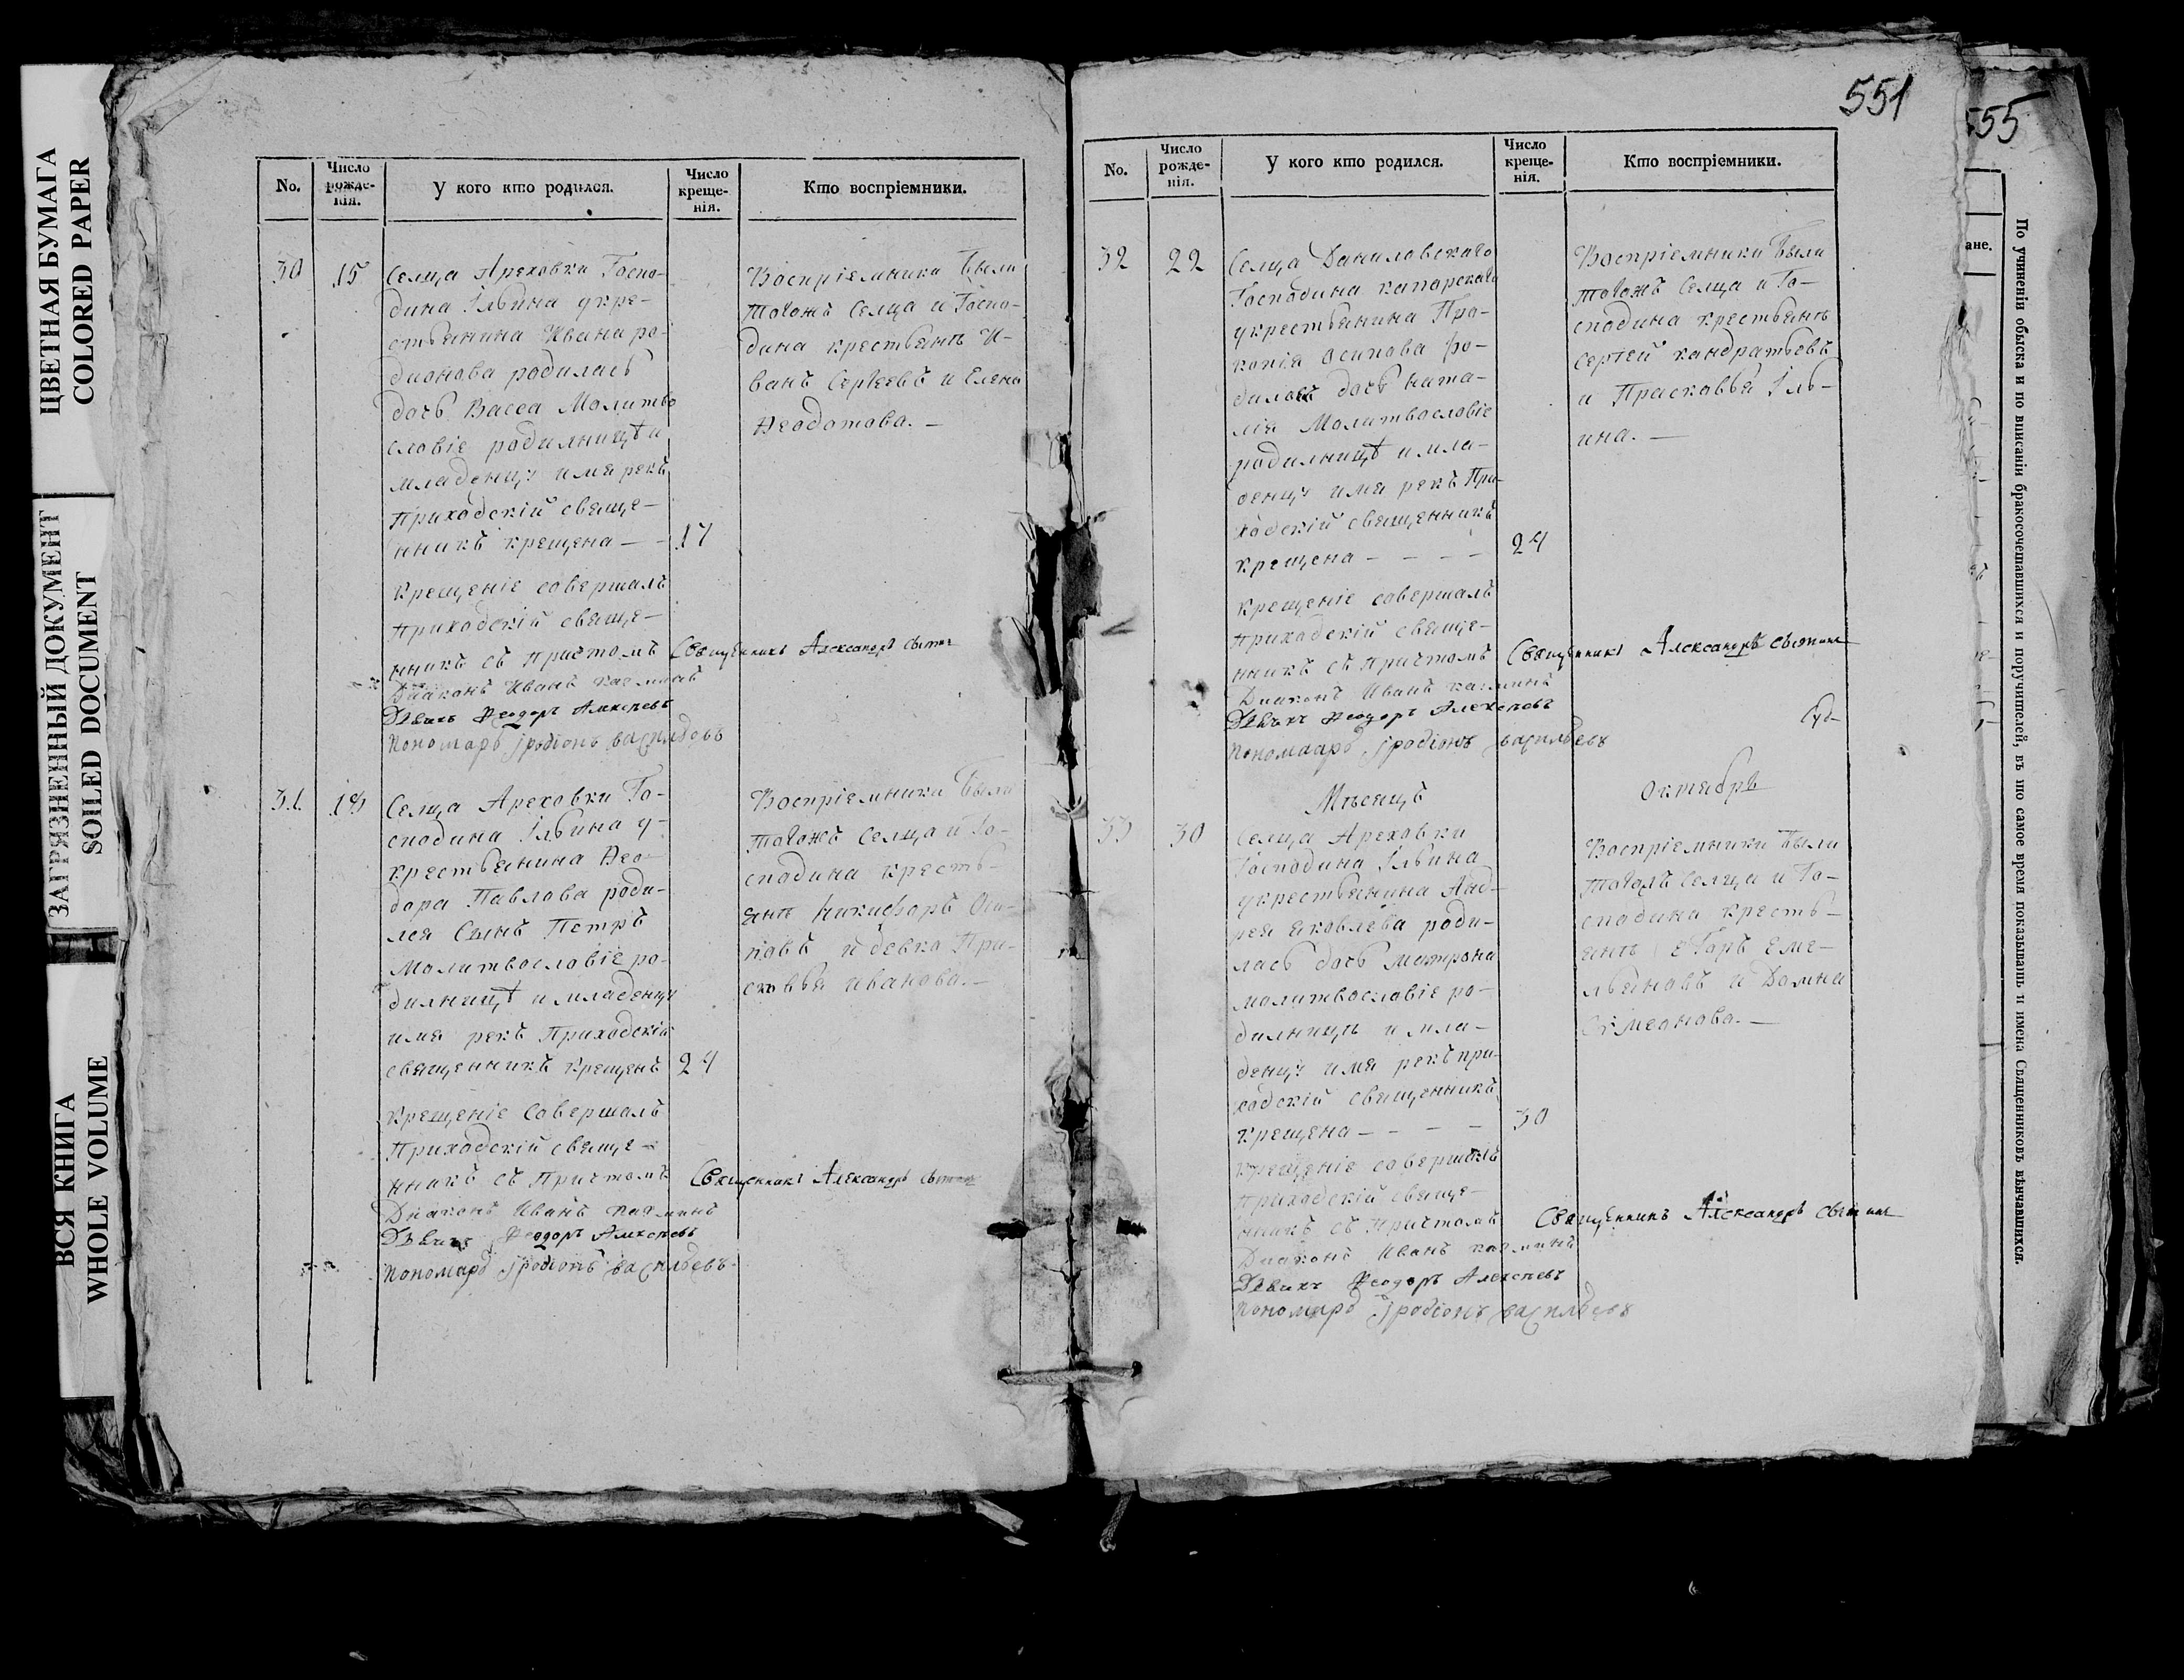 ЦВЕТНАЯ БУМАГА
COLORED PAPER
ЗАГРЯЗНЕННЫЙ ДОКУМЕНТ
SOILED DOCUMENT
ВСЯ КНИГА
WHOLE VOLUME
No.
Число рожде-нія.
У кого кто родился.
Число креще-нія.
Кто воспріемники.
30
15
Селца Ареховки Госпо-
дина Ильина укре-
стьянина Ивана ро-
дионова родилась
дочь Васса Молитво
словіе родильницѣ и
младенцу имя рекъ
Приходскій свяще-
нникъ крещена — -
17
крещеніе совершалъ
приходскій свяще-
нникъ съ Причтомъ
Священникъ Александръ
Диаконъ Иванъ
Дьячикъ Ѳеодоръ Алексѣевъ
Пономарь Іродіонъ Васильевъ
Воспріемники были
тогожъ Селца и Госпо-
дина крестьянъ И-
ванъ Сергѣевъ и Елена
Ѳеодотова. —
31
18
Селца Ареховки Го-
сподина Ильина у-
крестьянина Ѳео-
дора Павлова роди-
лся Сынъ Петръ
Молитвословіе ро-
дильницѣ и младенцу
имя рекъ Приходскій
священникъ крещенъ
24
крещеніе Совершалъ
Приходскій свяще-
нникъ съ Причтомъ
Священникъ Александръ
Диаконъ Иванъ
Дьячикъ Ѳеодоръ Алексѣевъ
Пономарь Іродіонъ Васильевъ
Воспріемники были
тогожъ селца и Го-
сподина кресть-
янъ Никифоръ Оси-
повъ и девка Пра-
сковья иванова. —
551
No.
Число рожде-нія.
У кого кто родился.
Число креще-нія.
Кто воспріемники.
32
22
Селца Даниловскаго
Господина
укрестьянина Про-
копія осипова ро-
дилась дочь ната-
лія Молитвословіе
родильницѣ и мла-
денцу имя рекъ При-
ходскій священникъ
крещена — — — —
24
крещеніе совершалъ
Приходскій свяще-
нникъ съ Причтомъ
Священникъ Александръ
Диаконъ Иванъ
Дьячикъ Ѳеодоръ Алексѣевъ
Пономаръ Іродіонъ Васильевъ
Воспріемники были
тогожъ Селца и Го-
сподина крестьянъ
сергей кандратьевъ
и Прасковья Иль-
ина. —
Мѣсяцъ
октябрь
33
30
Селца Ареховки
Господина Ильина
укрестьянина Анд-
рея Яковлева роди-
лась дочь матрона
молитвословіе ро-
дильницѣ и мла-
денцу имя рекъ при-
ходскій священникъ
крещена — — — —
30
крещеніе совершалъ
приходскій свяще-
нникъ съ Причтомъ
Священникъ Александръ
Диаконъ Иванъ
Дьячикъ Ѳеодоръ Алексѣевъ
Пономарь Іродіонъ Васильевъ
Воспріемники были
тогожъ селца и Го-
сподина кресть-
янъ егоръ еме-
льяновъ и Домна
Симеонова. —
555
ане.
По учиненіи обыска и по вписаніи бракосочетавшихся и поручителей, въ то самое время показывать и имена Священниковъ вѣнчавшихся.